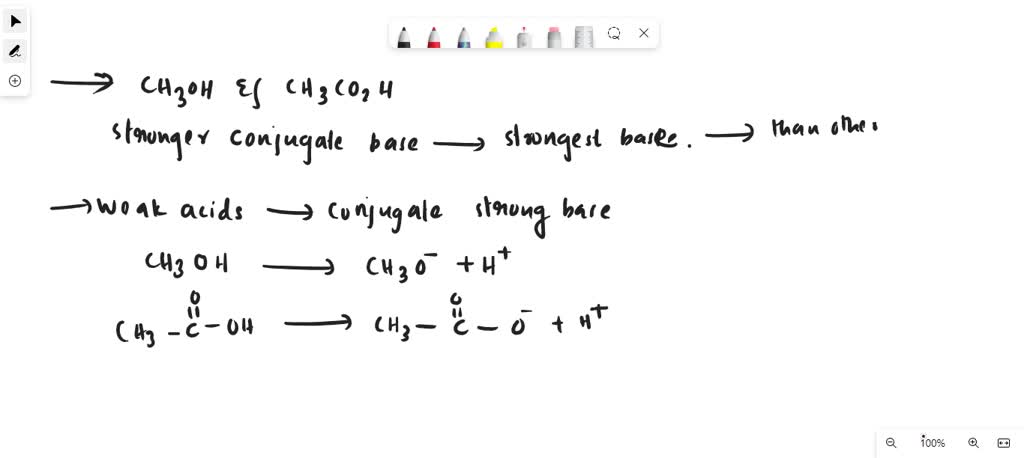 → CH3OH & CH3CO2H
stronger conjugate base → strongest base. → than other
→ weak acids → conjugate strong base
CH3OH → CH3O⁻ + H⁺
O
CH3 – C – OH → CH3 – C – O⁻ + H⁺
O
100%